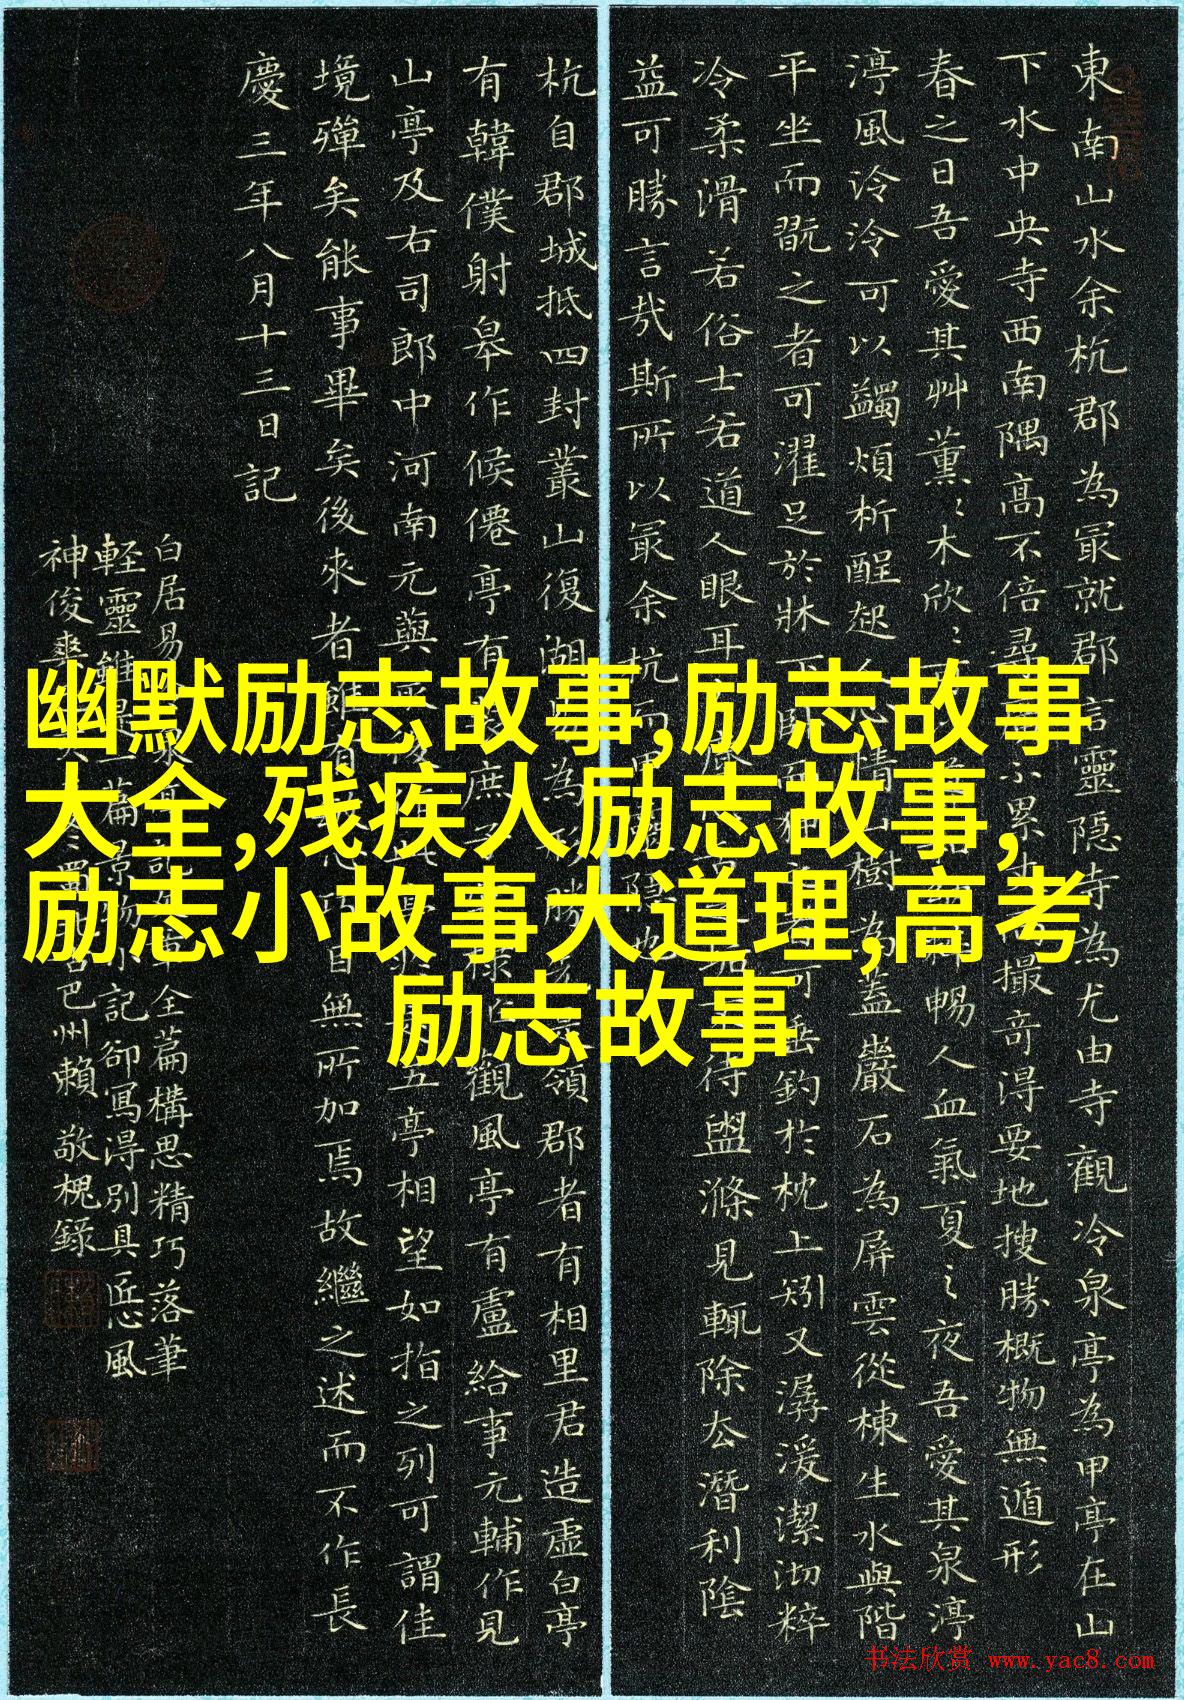 東南山水余杭郡為冣就郡言靈隐寺為尤由寺觀冷泉亭為甲亭在山
下水中央寺西南隅高不倍尋不累撮竒淂要地搜勝概物無遁形
春之日吾愛其艸薰〻木欣〻暢人血氣夏〻夜吾愛其泉渟
渟風泠泠可以蠲煩析酲起情樹為蓋巖石為屏雲從棟生水與階
平坐而翫之者可濯足於牀下可垂釣於枕上矧又潺湲潔沏粹
冷柔滑若俗士若道人眼耳待盥滌見輒除去潛利陰
益可勝言哉斯所以冣余杭
杭自郡城抵四封叢山復湖為勝領郡者有相里君造虛白亭
有韓僕射皋作候僊亭有庶觀風亭有盧給事元輔作見
山亭及右司郎中河南元藇五亭相望如指之列可謂佳
境殫矣能事畢矣後來者雖有巧目無所加焉故繼之述而不作長
慶三年八月十三日記
白居易全篇構思精巧落筆
軽靈雖是一篇景物小記卻寫淂別具匠心風
神俊爽巴州賴敬槐錄
幽默励志故事,励志故事
大全,残疾人励志故事,
励志小故事大道理,高考
励志故事
书法欣赏 www.yac8.com